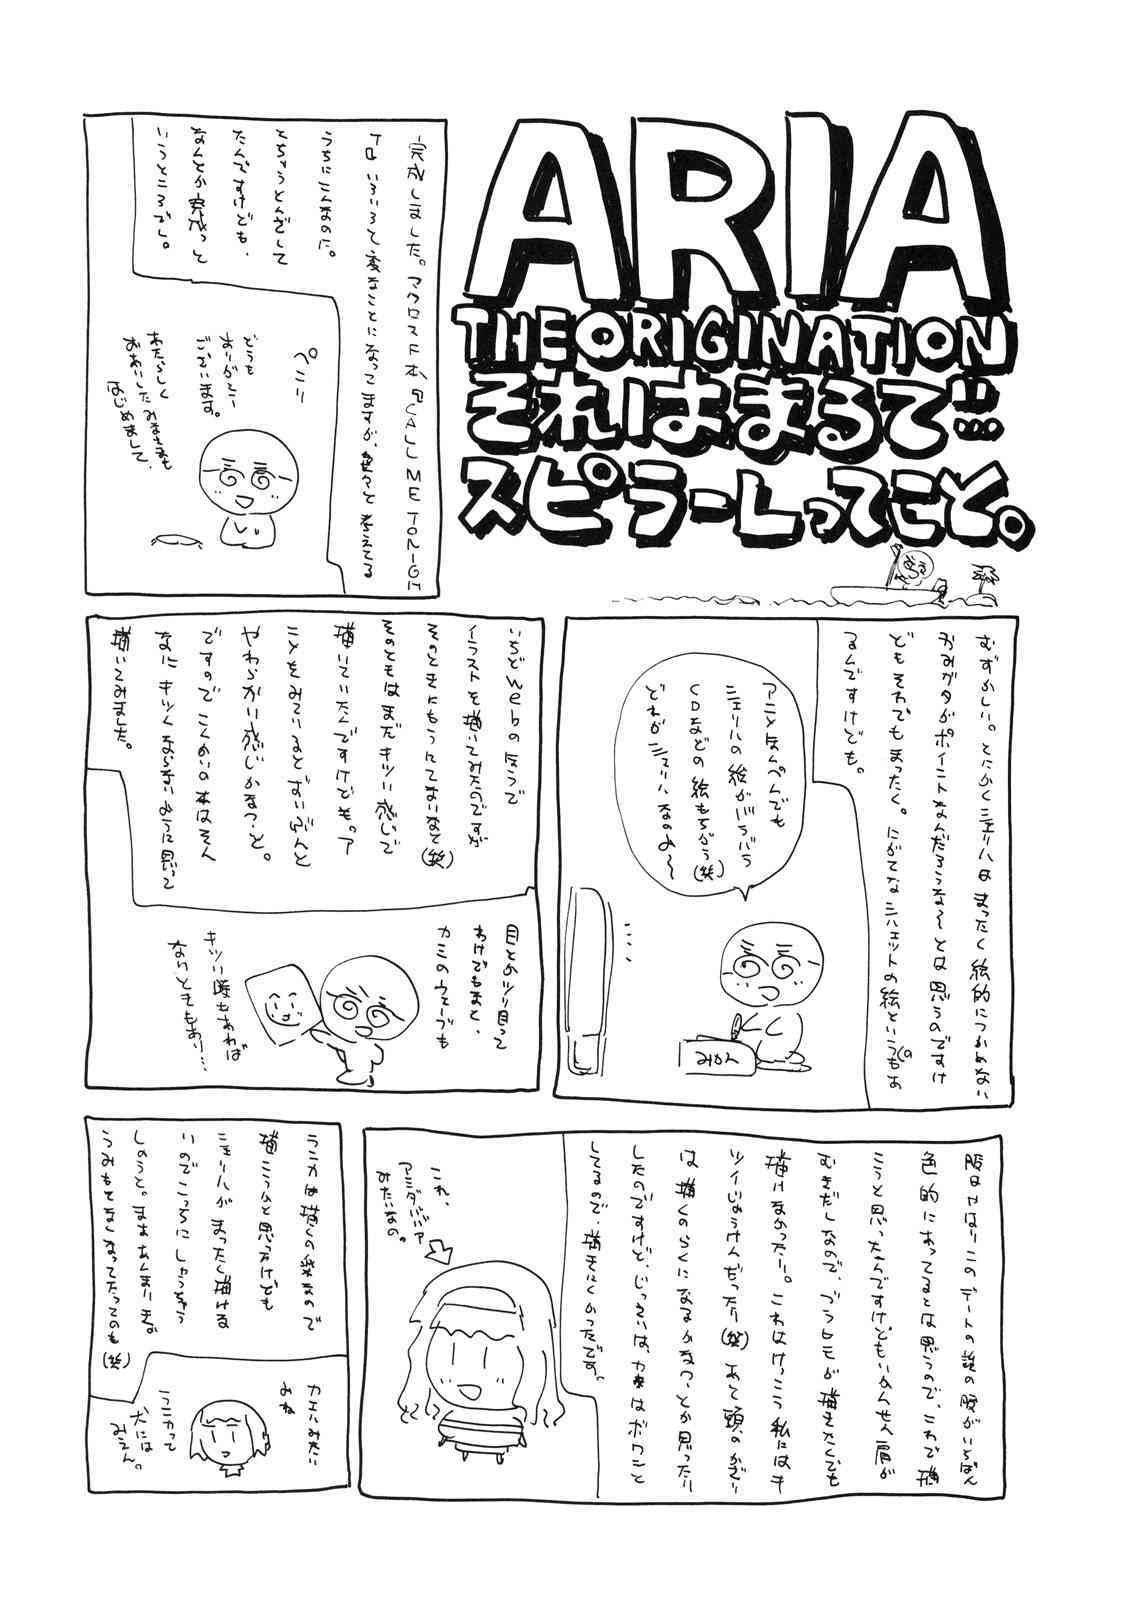 ARIA
THE ORIGINATION
それはまるで…
スピラーレってこと。
完成しました。マクロスF本、『CALL ME TONIGH
T』いろいろて変なことになってますが、色々と考えてる
うちにこんなのに。
とちゅうとんざして
たんですけども、
なんとか完成っと
いうところでし。
ペこり
どうも
ありがとう
ございます。
あたらしく
おあいしたみなさまも
はじめまして、
むずかしい。とにかくシェリルはまったく絵的につかめない
かみガタがポイントなんだろうな～とは思うのですけ
どもそれでもまったく。にがてなシルエットの絵という(の)もあ
るんですけども。
アニメほんぺんでも
シェリルの絵がバラバラ
CDなどの絵もちがう(笑)
どれがシェリルなのよ～
みかん
いちどwebのほうで
イラストを描いてみたのですが
そのときにもうにてないなと(笑)
そのときはまだキツい感じで
描いていたんですけども。ア
ニメをみているとずいぶんと
やわらかい感じかなっ、と。
ですのでこんかいの本はそん
なにキツくならないように思って
描いてみました。
目とかツリ目って
わけでもなく、
カミのウェーブも
キツい時もあれば
ないときもあり…
服はやはりこのデートの話の服がいちばん
色的にあってるとは思うので、これで描
こうと思ったんですけどもいかんせん肩が
むきだしなので、ブラヒモが描きたくても
描けなかったり。これはけっこう私にはキ
ツイじょうけんだったり(笑)あと頭のかざり
は描くのらくになるかなっ、とか思ったり
したのですけど、じっさいは、カミはボワンと
してるので、描きにくかったです。
これ、
アミダババア
みたいなの。
ランカは描くの楽なので
描こうかと思ったけども
シェリルがまったく描けな
いのでこっちにしちゃいま
しょうと。まああんまり本な
うみもとなくなってたってのも(笑)
カエルみたい
みね
ランカって
犬には
みえん。